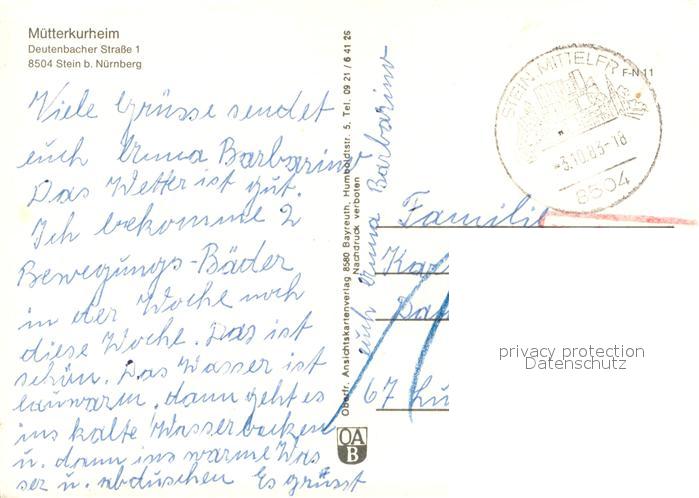 Mütterkurheim
Deutenbacher Straße 1
8504 Stein b. Nürnberg
Viele Grüsse sendet
euch Erna Barbarino
Das Wetter ist gut.
Ich bekomme 2
Bewegungs-Bäder
in der Woche noch
diese Woche. Das ist
schön. Das Wasser ist
lauwarm, dann geht es
ins kalte Wasserbecken
u. dann ins warme Was
ser u. abduschen Es grüsst
euch Erna Barbarino
Oberfr. Ansichtskartenverlag 8580 Bayreuth, Humboldtstr. 5, Tel. 09 21 / 6 41 26
Nachdruck verboten
OA
B
STEIN, MITTELFR
-3.10.83-18
8504
F-N 11
Familie
Kar
67 Lu
privacy protection
Datenschutz